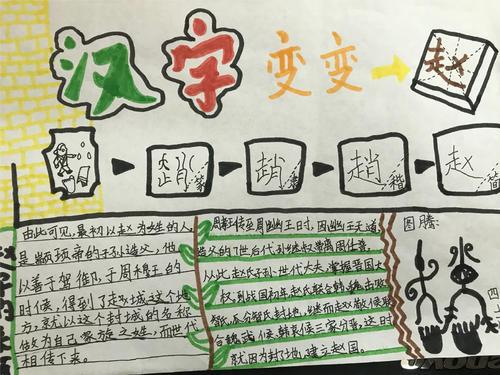 汉字变变 赵
篆 趙 隶 趙 楷 赵 简
由此可见,最初以赵为姓的人
是颛顼帝的子孙造父,他
以善于驾御,于周穆王的
时候,得到了赵城这个地
方,就以这个封城的名称
做为自己家族之姓,而世代
相传下来。
传至周幽王时,因幽王无道,
造父的7世后代孙叔带离周仕晋。
从此,赵氏子孙世代大夫,掌握晋国大
权,到战国初年,赵氏联合韩、魏击败
智,瓜分智氏封地,继而赵敬侯联
合魏武侯、韩哀侯三家分晋,这时
就因为封地,建立赵国。
图腾: